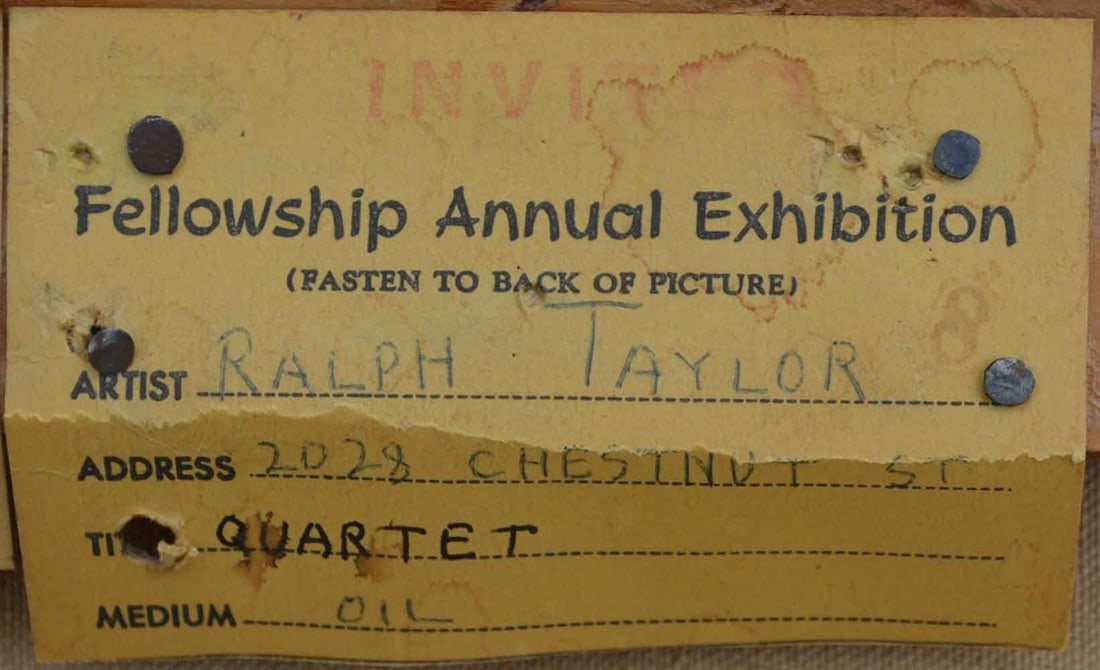 INVITED
Fellowship Annual Exhibition
(FASTEN TO BACK OF PICTURE)
ARTIST RALPH TAYLOR
ADDRESS 2028 CHESTNUT ST
TI QUARTET
MEDIUM OIL